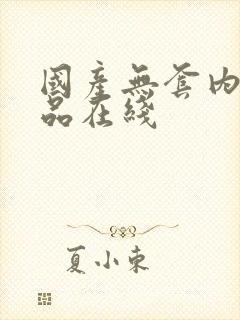 國產無套内
品在綫
夏小東